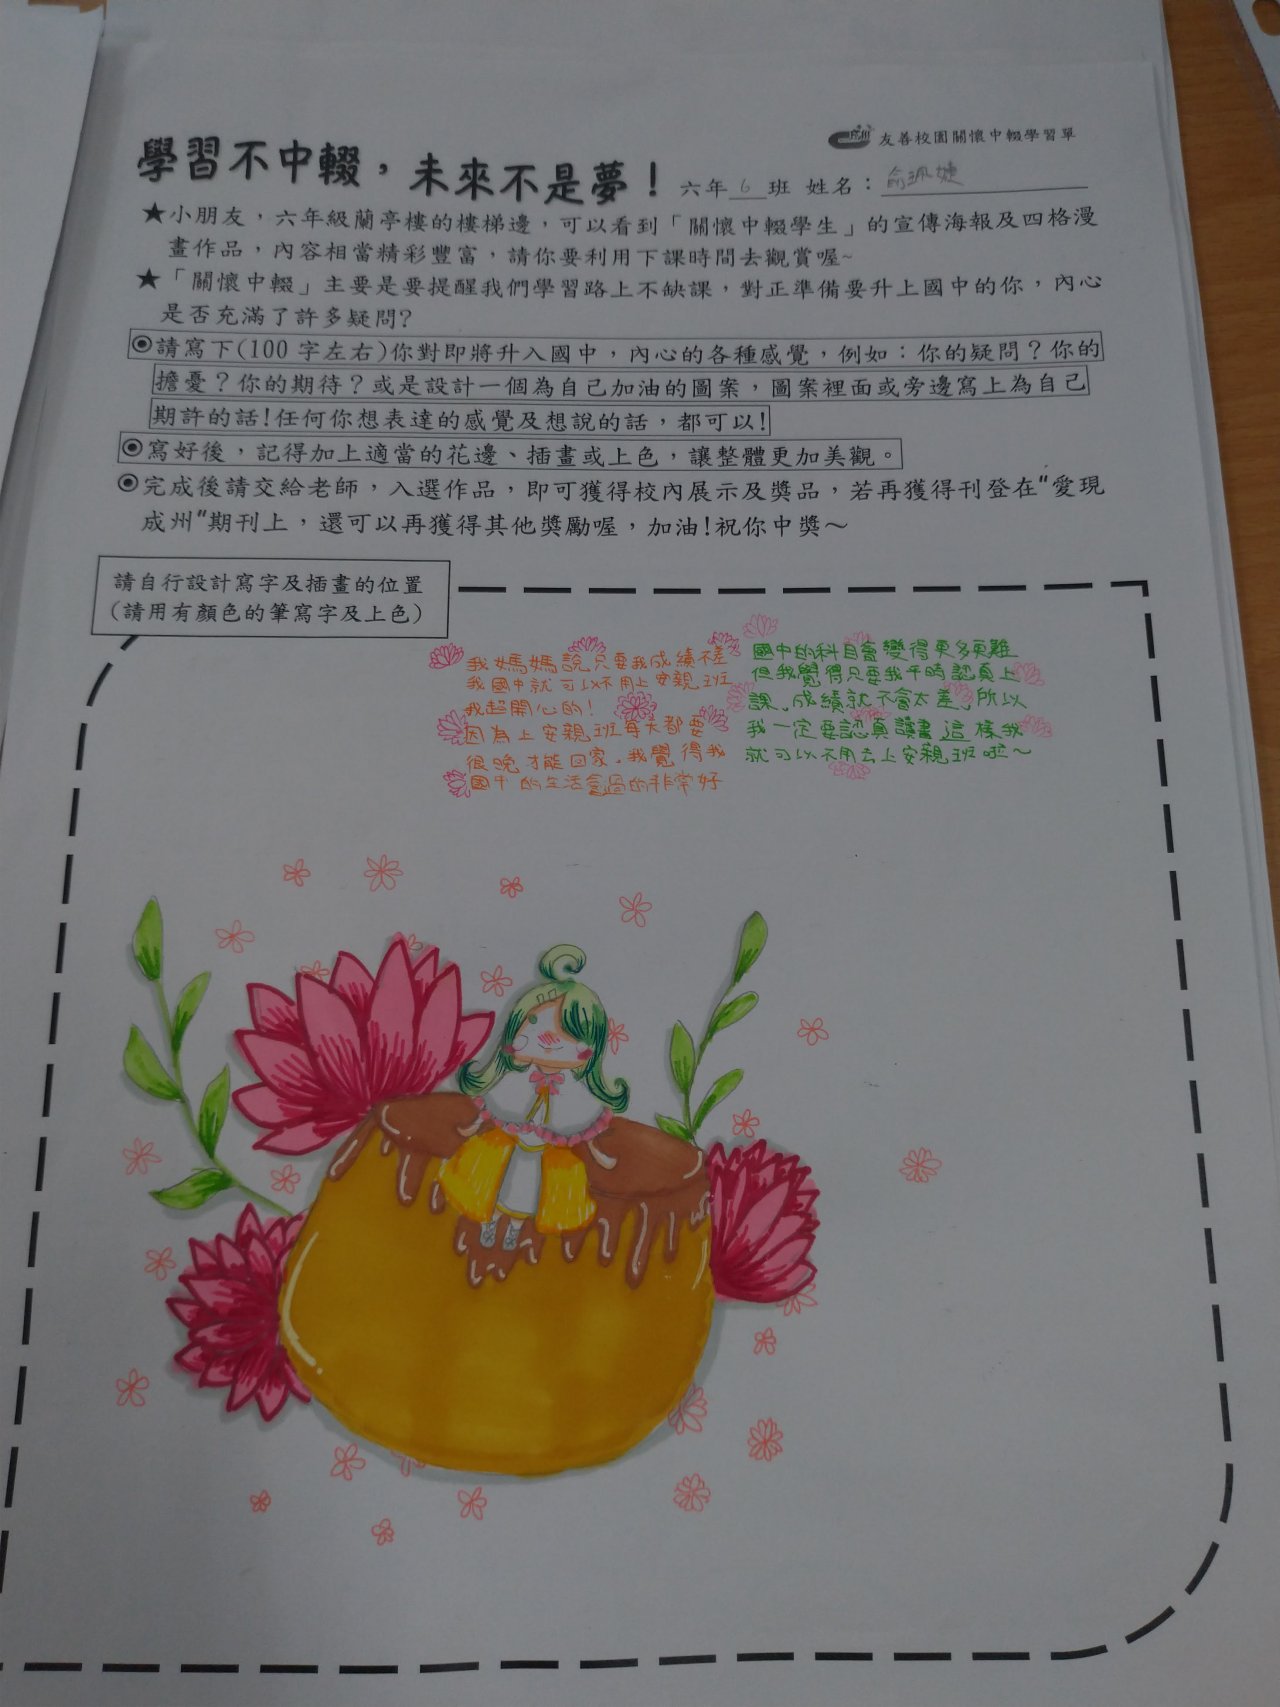 友善校園關懷中輟學習單
學習不中輟，未來不是夢！ 六年 6 班 姓名：俞珮婕
★小朋友，六年級蘭亭樓的樓梯邊，可以看到「關懷中輟學生」的宣傳海報及四格漫
畫作品，內容相當精彩豐富，請你要利用下課時間去觀賞喔~
★「關懷中輟」主要是要提醒我們學習路上不缺課，對正準備要升上國中的你，內心
是否充滿了許多疑問?
◉請寫下(100 字左右)你對即將升入國中，內心的各種感覺，例如：你的疑問？你的
擔憂？你的期待？或是設計一個為自己加油的圖案，圖案裡面或旁邊寫上為自己
期許的話!任何你想表達的感覺及想說的話，都可以!
◉寫好後，記得加上適當的花邊、插畫或上色，讓整體更加美觀。
◉完成後請交給老師，入選作品，即可獲得校內展示及獎品，若再獲得刊登在"愛現
成州"期刊上，還可以再獲得其他獎勵喔，加油!祝你中獎～
請自行設計寫字及插畫的位置
(請用有顏色的筆寫字及上色)
我媽媽說只要我成績不差
我國中就可以不用上安親班
我超開心的!
因為上安親班每天都要
很晚才能回家，我覺得我
國中的生活會過的非常好
國中的科目會變得更多更難
但我覺得只要我平時認真上
課，成績就不會太差，所以
我一定要認真讀書這樣我
就可以不用去上安親班啦～